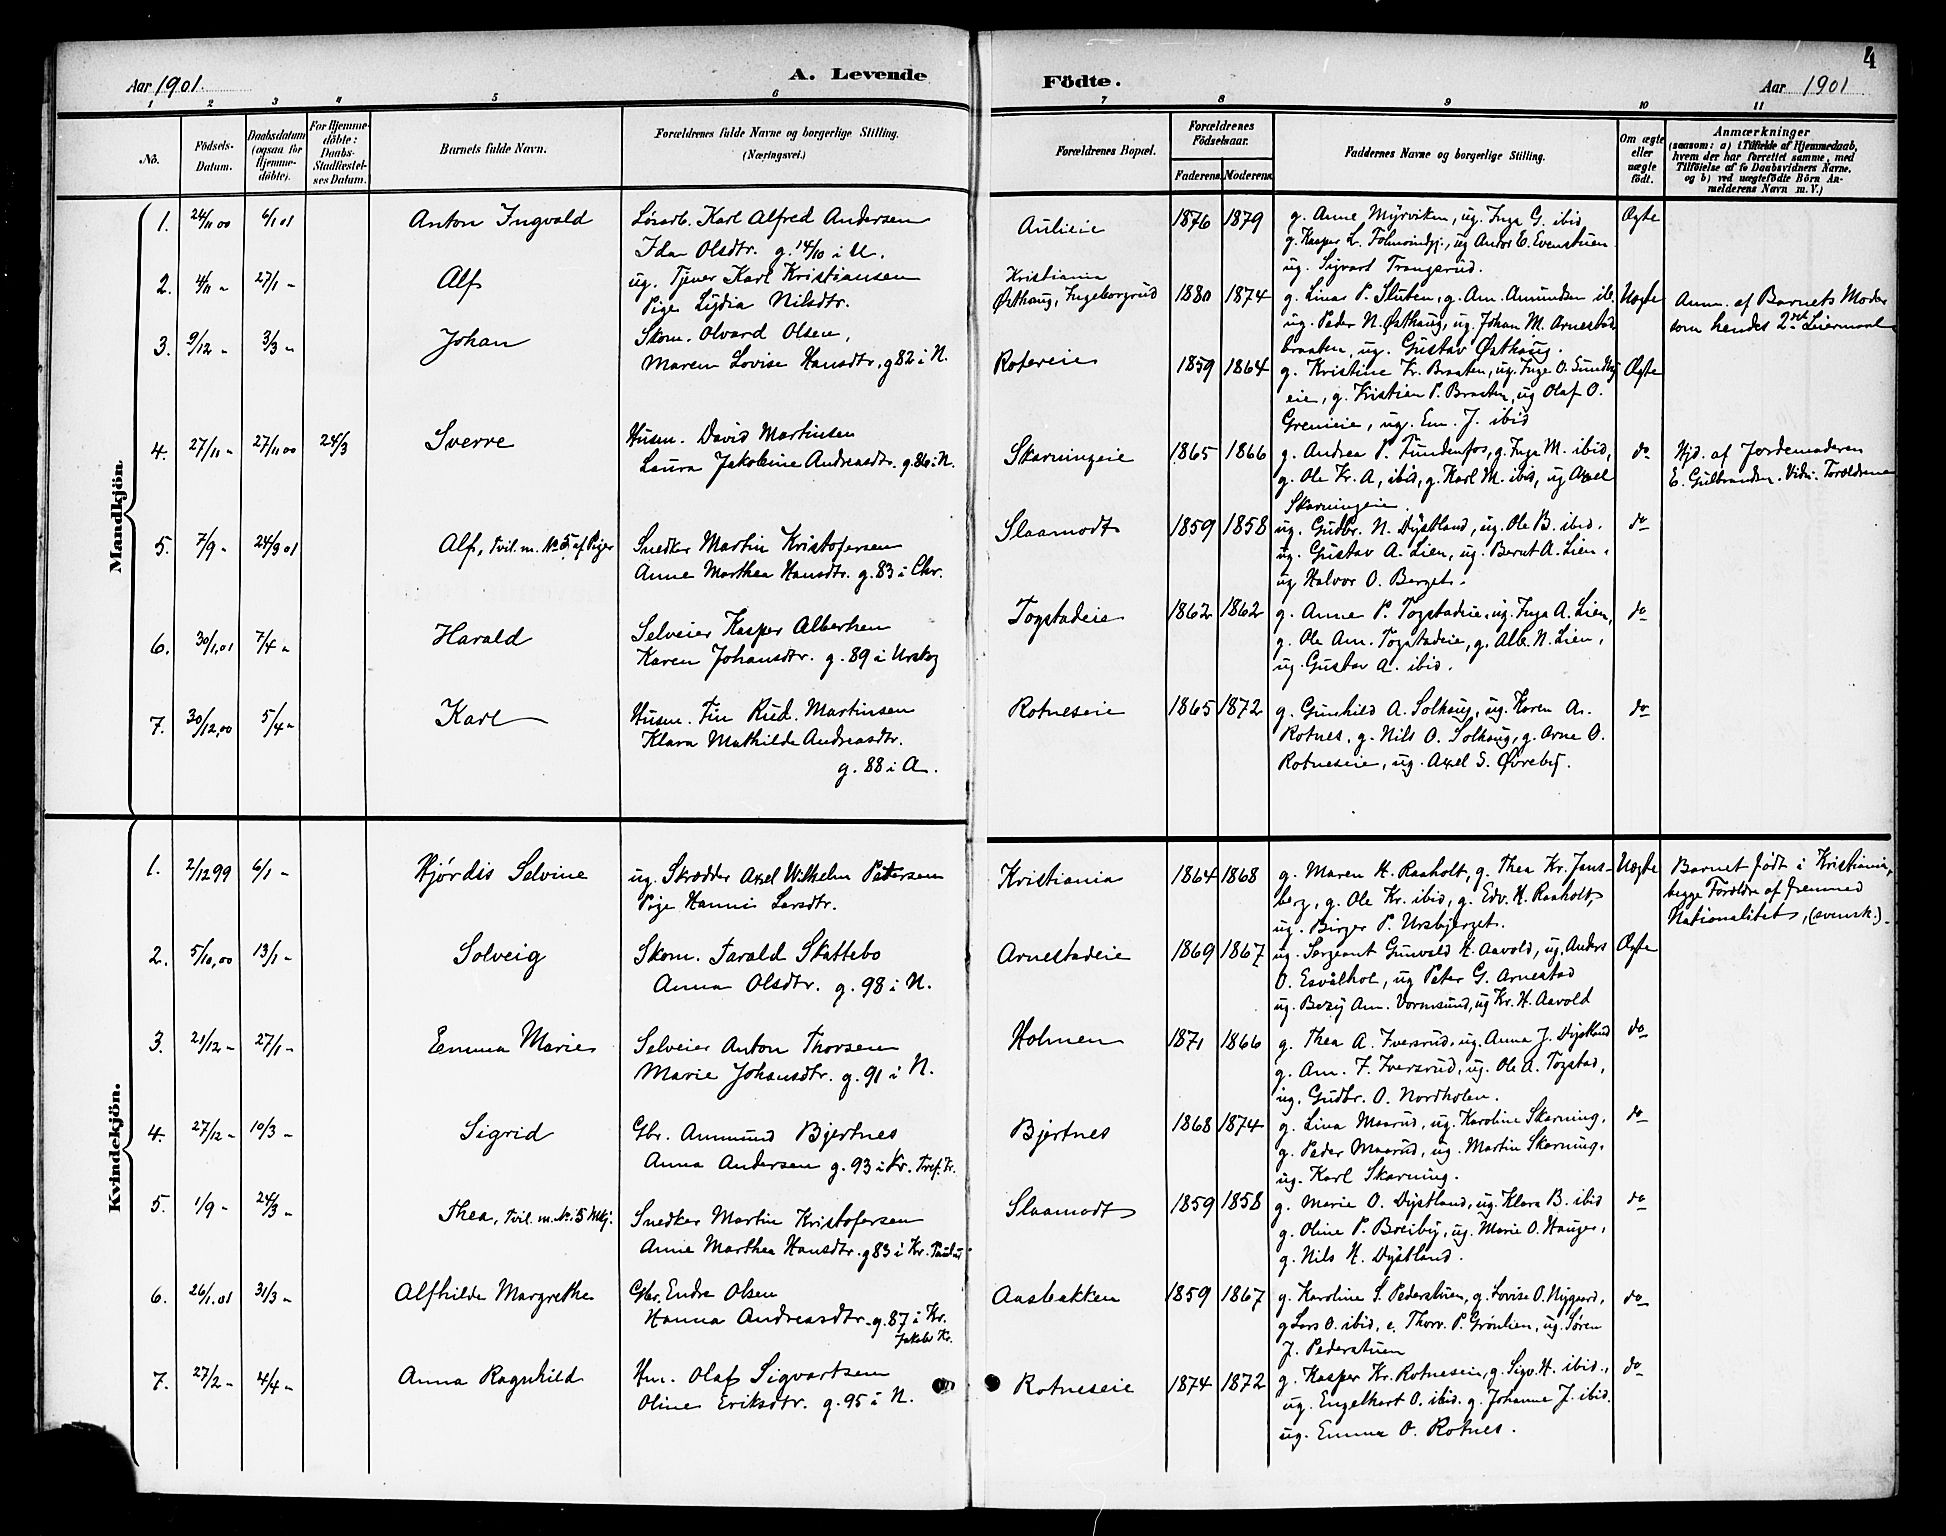 Aar 1901. A. Levende Födte. Aar 1901 4
1 2 3 4 5 6 7 8 9 10 11
No. Födsels-Datum. Daabsdatum (ogsaa for Hjemme-döbte). For Hjemme-döbte: Daabs-Stadfæstel-ses Datum. Barnets fulde Navn. Forældrenes fulde Navne og borgerlige Stilling. (Næringsvei.) Forældrenes Bopæl. Forældrenes Födselsaar. Faderens. Moderens. Faddernes Navne og borgerlige Stilling. Om ægte eller uægte födt. Anmærkninger (saasom: a) i Tilfælde af Hjemmedaab, hvem der har forrettet samme, med Tilföielse af to Daabsvidners Navne, og b) ved uægtefödte Börn An-melderens Navn m. V.)
Mandkjön.
1. 24/11 00 6/1 01 Anton Ingvald Løsarb. Karl Alfred Andersen Aulieie 1876 1879 g. Anne Myrviken, ug. Inga G. ibid Ægte
Ida Olsdtr. g. 14/10 i U. g. Kasper L. ug Andor E. Evenstuen
ug. Sigvart Trangsrud.
2. 4/11 - 27/1 - Alf ug. Tjener Karl Kristiansen Kristiania
Pige Lydia Nilsdtr. Østhaug, Ingeborgrud 1880 1874 g. Linas P. Sluten, g. Am. Amundsen ib. Uægte Anm. af Barnets Moder
ug. Peder N. Østhaug, ug. Johan M. Arnestad som hendes 2net Leiermaal
braaten, ug. Gustav Østhaug.
3. 9/12 - 3/3 - Johan Skom. Olvard Olsen,
Maren Lovise Hansdtr. g 82 i N. Rotereie 1859 1864 g. Kristine Kr. Braaten, ug. Inga O. Sundby Ægte
eie, g. Kristian P. Braaten, ug Olaf O.
Grenieie, ug. Em. J. ibid
4. 27/11 - 27/11 00 24/3 Sverre Husm. David Martinsen
Laura Jakobine Andreasdtr. g. 86 i N. Skarningeie 1865 1866 g. Andrea P. Fundenfos, g. Inga M. ibid, do Hjd. af Jordemoderen
g. Ole Kr. A, ibid, g. Karl M. ibid, ug Axel E. Gulbrandsen. Vidn: Forældrene
Skarningeie.
5. 7/9 - 24/3 01 Alf, Tvil. m. No 5 af Piger Snedker Martin Kristofersen Slaamodt 1859 1858 ug. Gudbr. N. Dystland, ug. Ole B. ibid. do
Anne Marthea Hansdtr. g. 83 i Chr. ug. Gustav A. Lien, ug. Bernt A. Lien,
ug Halvor O. Berget.
6. 30/1,01 7/4 - Harald Selveier Kasper Albertsen Togstadeie 1862 1862 g. Anne P. Togstadeie, ug. Inga A. Lien, do
Karen Johansdtr. g. 89 i Urskog g. Ole Am. Togstadeie, g. Alb. N. Lien,
ug. Gustav A. ibid.
7. 30/12,00 5/4 - Karl Husm. Fin Rud. Martinsen Rotneseie 1865 1872 g. Gunhild A. Solhaug, ug. Karen An. do
Klara Mathilde Andreasdtr. Rotnes, g. Nils O. Solhaug, g. Arne O.
g. 88 i A. Rotneseie, ug. Axel S. Øvreby.
Kvindekjön.
1. 2/12 99 6/1 - Hjørdis Selvine ug. Skrædder Axel Wilhelm Petersen Kristiania 1864 1868 g. Maren H. Raaholt, g. Thea Kr. Jens- Uægte Barnet født i Kristiania,
Pige Hanna Larsdtr. berg, g. Ole Kr. ibid, g. Edv. H. Raaholt, begge Forældre af fremmed
ug. Birger P. Ursbjerget. Nationalitet, (svensk.).
2. 5/10,00 13/1 - Solveig Skom. Tarald Skattebo Arnestadeie 1869 1867 ug. Sergeant Gunvald H. Aavold, ug. Anders Ægte
Anna Olsdtr. g. 98 i N. O. Esvalhol, ug Peter G. Arnestad
ug. Berzy Am. Vormsund, ug Kr. H. Aavold
3. 21/12 - 27/1 - Emma Marie Selveier Anton Thorsen Holmen 1871 1866 g. Thea A. Iversrud, ug. Anna J. Dystland do
Marie Johansdtr. g. 91 i N. g. Am. F. Iversrud, ug. Ole A. Togstad,
ug. Gudbr. O. Nordholen.
4. 27/12 - 10/3 - Sigrid Gbr. Ammund Bjertnes Bjertnes 1868 1874 g. Lina Maarud, ug. Karoline Skarning, do
Anna Andersen g. 93 i Kr. Tref. Kr. g. Peder Maarud, ug. Martin Skarning,
ug. Karl Skarning.
5. 1/9 - 24/3 - Thea, Tvil. m. No. 5 Mkj. Snedker Martin Kristofersen Slaamodt 1859 1858 g. Marie O. Dystland, ug. Klara B. ibid do
Anne Marthea Hansdtr. g 83 i Kr. Paulus g. Oline P. Breiby, ug. Marie O. Hauger,
g. Nils H. Dystland.
6. 26/1,01 31/3 - Alfhilde Margrethe Gbr. Endre Olsen Aasbakken 1859 1867 g. Karoline S. Pederstuen, g. Lovise O. Nygaard, do
Hanna Andreasdtr. g. 87 i Kr. g Lars O. ibid, e. Thorv. P. Grønlien, ug. Søren
Jakobs K. J. Pederstuen
7. 27/2 - 4/4 - Anna Ragnhild Hm. Olaf Sigvartsen Rotneseie 1874 1872 g. Kasper Kr. Rotneseie, g. Sigv. H. ibid., do
Oline Eriksdtr. g. 95 i N. ug. Engelhart O. ibid. g. Johanne J. ibid.
ug. Emma O. Rotnes.